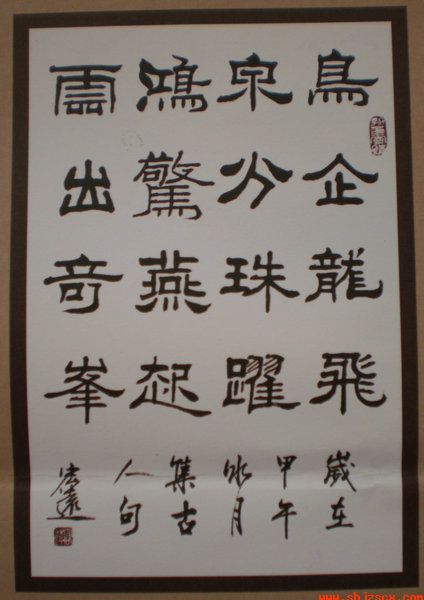 鳥企龍飛
泉分珠躍
鴻驚燕起
雲出奇峯
歲在
甲午
冰月
集古
人句
宏遠
www.sbjzscx.com